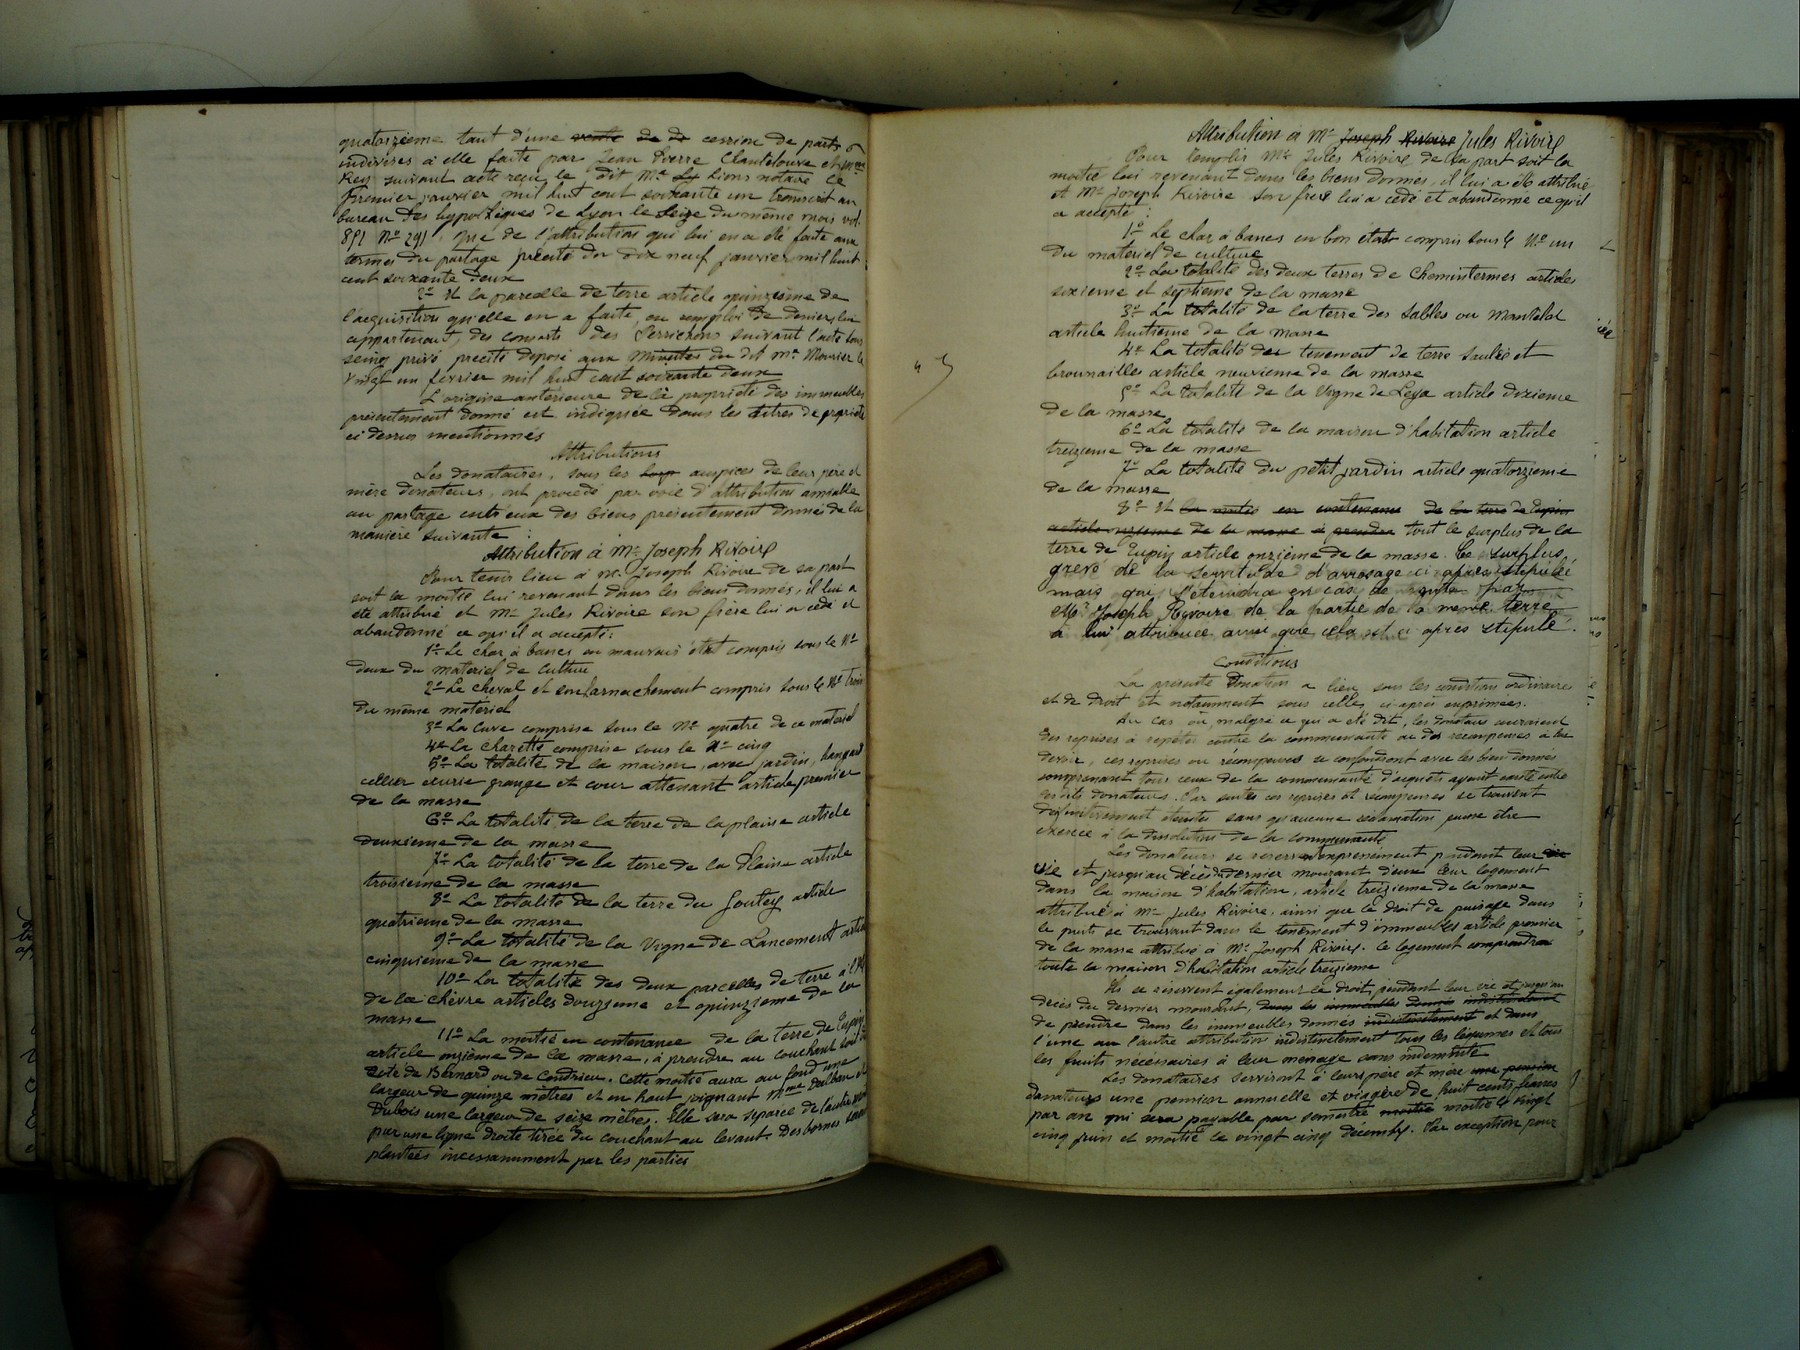 quatorzième tant d'une vente de d cession de parts
indivises à elle faite par Jean Pierre Chanteloure et Mme
Rey suivant acte reçu le dit Me Ly Lions notaire le
premier janvier mil huit cent soixante un transcrit au
bureau des hypothèques de Lyon le seize du même mois vol.
851 No 291. que de l'attribution qui lui en a été faite aux
termes du partage précité du dix neuf janvier mil huit
cent soixante deux
2o Et la parcelle de terre article quinzième de
l'acquisition qu'elle en a faite en remploi de deniers lui
appartenant, des consorts des Perrichons suivant l'acte sous
seing privé précité déposé aux minutes du dit Me Mourier le
vingt un février mil huit cent soixante deux
L'origine antérieure de la propriété des immeubles
présentement donné est indiquée dans les titres de propriété
ci dessus mentionnés
Attributions
Les donataires, sous les auspices de leur père et
mère donateurs, ont procédé par voie d'attribution amiable
au partage entr'eux des biens présentement donnés de la
manière suivante :
Attribution à Mr Joseph Rivoire
Pour tenir lieu à Mr Joseph Rivoire de sa part
soit la moitié lui revenant dans les biens donnés, il lui a
été attribué et Mr Jules Rivoire son frère lui a cédé et
abandonné ce qu'il a accepté :
1o Le char à bancs en mauvais état compris sous le No
deux du matériel de culture
2o Le cheval et son harnachement compris sous le No trois
du même matériel
3o La cuve comprise sous le No quatre de ce matériel
4o La charette comprise sous le No cinq
5o La totalité de la maison, avec jardin, hangard
cellier écurie grange et cour attenant article premier
de la masse
6o La totalité de la terre de la plaine article
deuxième de la masse
7o La totalité de la terre de la Plaine article
troisième de la masse
8o La totalité de la terre du article
quatrième de la masse
9o La totalité de la Vigne de Lancement article
cinquième de la masse
10o La totalité des deux parcelles de terre à
de la chèvre articles douzième et quinzième de la
masse
11o La moitié en contenance de la terre de Eupin
article onzième de la masse, à prendre au couchant soit du
côté de Bernard ou de Condrieu. Cette moitié aura au fond une
largeur de quinze mètres et en haut joignant Mme et
Dubois une largeur de seize mètres. Elle sera séparée de l'autre
par une ligne droite tirée du couchant au levant. Des bornes seront
plantées incessamment par les parties
Attribution à Mr Joseph Rivoire Jules Rivoire
Pour remplir Mr Jules Rivoire de sa part soit la
moitié lui revenant dans les biens donnés, il lui a été attribué
et Mr Joseph Rivoire son frère lui a cédé et abandonné ce qu'il
a accepté :
1o Le char à bancs en bon état compris sous le No un
du matériel de culture
2o La totalité des deux terres de Chemintermes articles
sixième et septième de la masse
3o La totalité de la terre des Sables ou Mantelot
article huitième de la masse
4o La totalité des tènement de terre saulés et
brounailles article neuvième de la masse
5o La totalité de la Vigne de Leya article dixième
de la masse
6o La totalité de la maison d'habitation article
treizième de la masse
7o La totalité du petit jardin article quatorzième
de la masse
8o Et la moitié en contenance de la terre de Eupin
article onzième de la masse à prendre tout le surplus de la
terre de Eupin article onzième de la masse. Ce surplus
grevé de la servitude d'arrosage ci après stipulée
mais qui s'éteindra en cas de vente par
Mr Joseph Rivoire de la partie de la même terre
à lui attribuée ainsi que cela est ci après stipulé.
Conditions
La présente Donation a lieu sous les condition ordinaires
et de droit et notamment sous celles ci-après exprimées.
Au cas où, malgré ce qui a été dit, les donateurs auraient
des reprises à répéter contre la communauté ou des récompenses à lui
devoir, ces reprises ou récompenses se confondront avec les biens donnés
comprenant tous ceux de la communauté d'acquets ayant existé entre
les dits donateurs. Par suite ces reprises et récompenses se trouvent
définitivement éteintes sans qu'aucune réclamation puisse être
exercée à la dissolution de la communauté
Les donateurs se réservent expressément pendant leur vie
vie et jusqu'au décès du dernier mourant d'eux leur logement
dans la maison d'habitation, article treizième de la masse
attribué à Mr Jules Rivoire, ainsi que le droit de puisage dans
le puits se trouvant dans le tènement d'immeubles article premier
de la masse attribué à Mr Joseph Rivoire. Ce logement comprendra
toute la maison d'habitation article treizième
Ils se réservent également le droit, pendant leur vie et jusqu'au
décès du dernier mourant, dans les immeubles donnés indistinctement
de prendre dans les immeubles donnés indistinctement et dans
l'une ou l'autre attribution indistinctement tous les légumes et tous
les fruits nécessaires à leur ménage sans indemnité
Les donataires serviront à leurs père et mère une pension
Donateurs une pension annuelle et viagère de huit cents francs
par an qui sera payable par semestre moitié moitié le vingt
cinq juin et moitié le vingt cinq décembre. Par exception pour